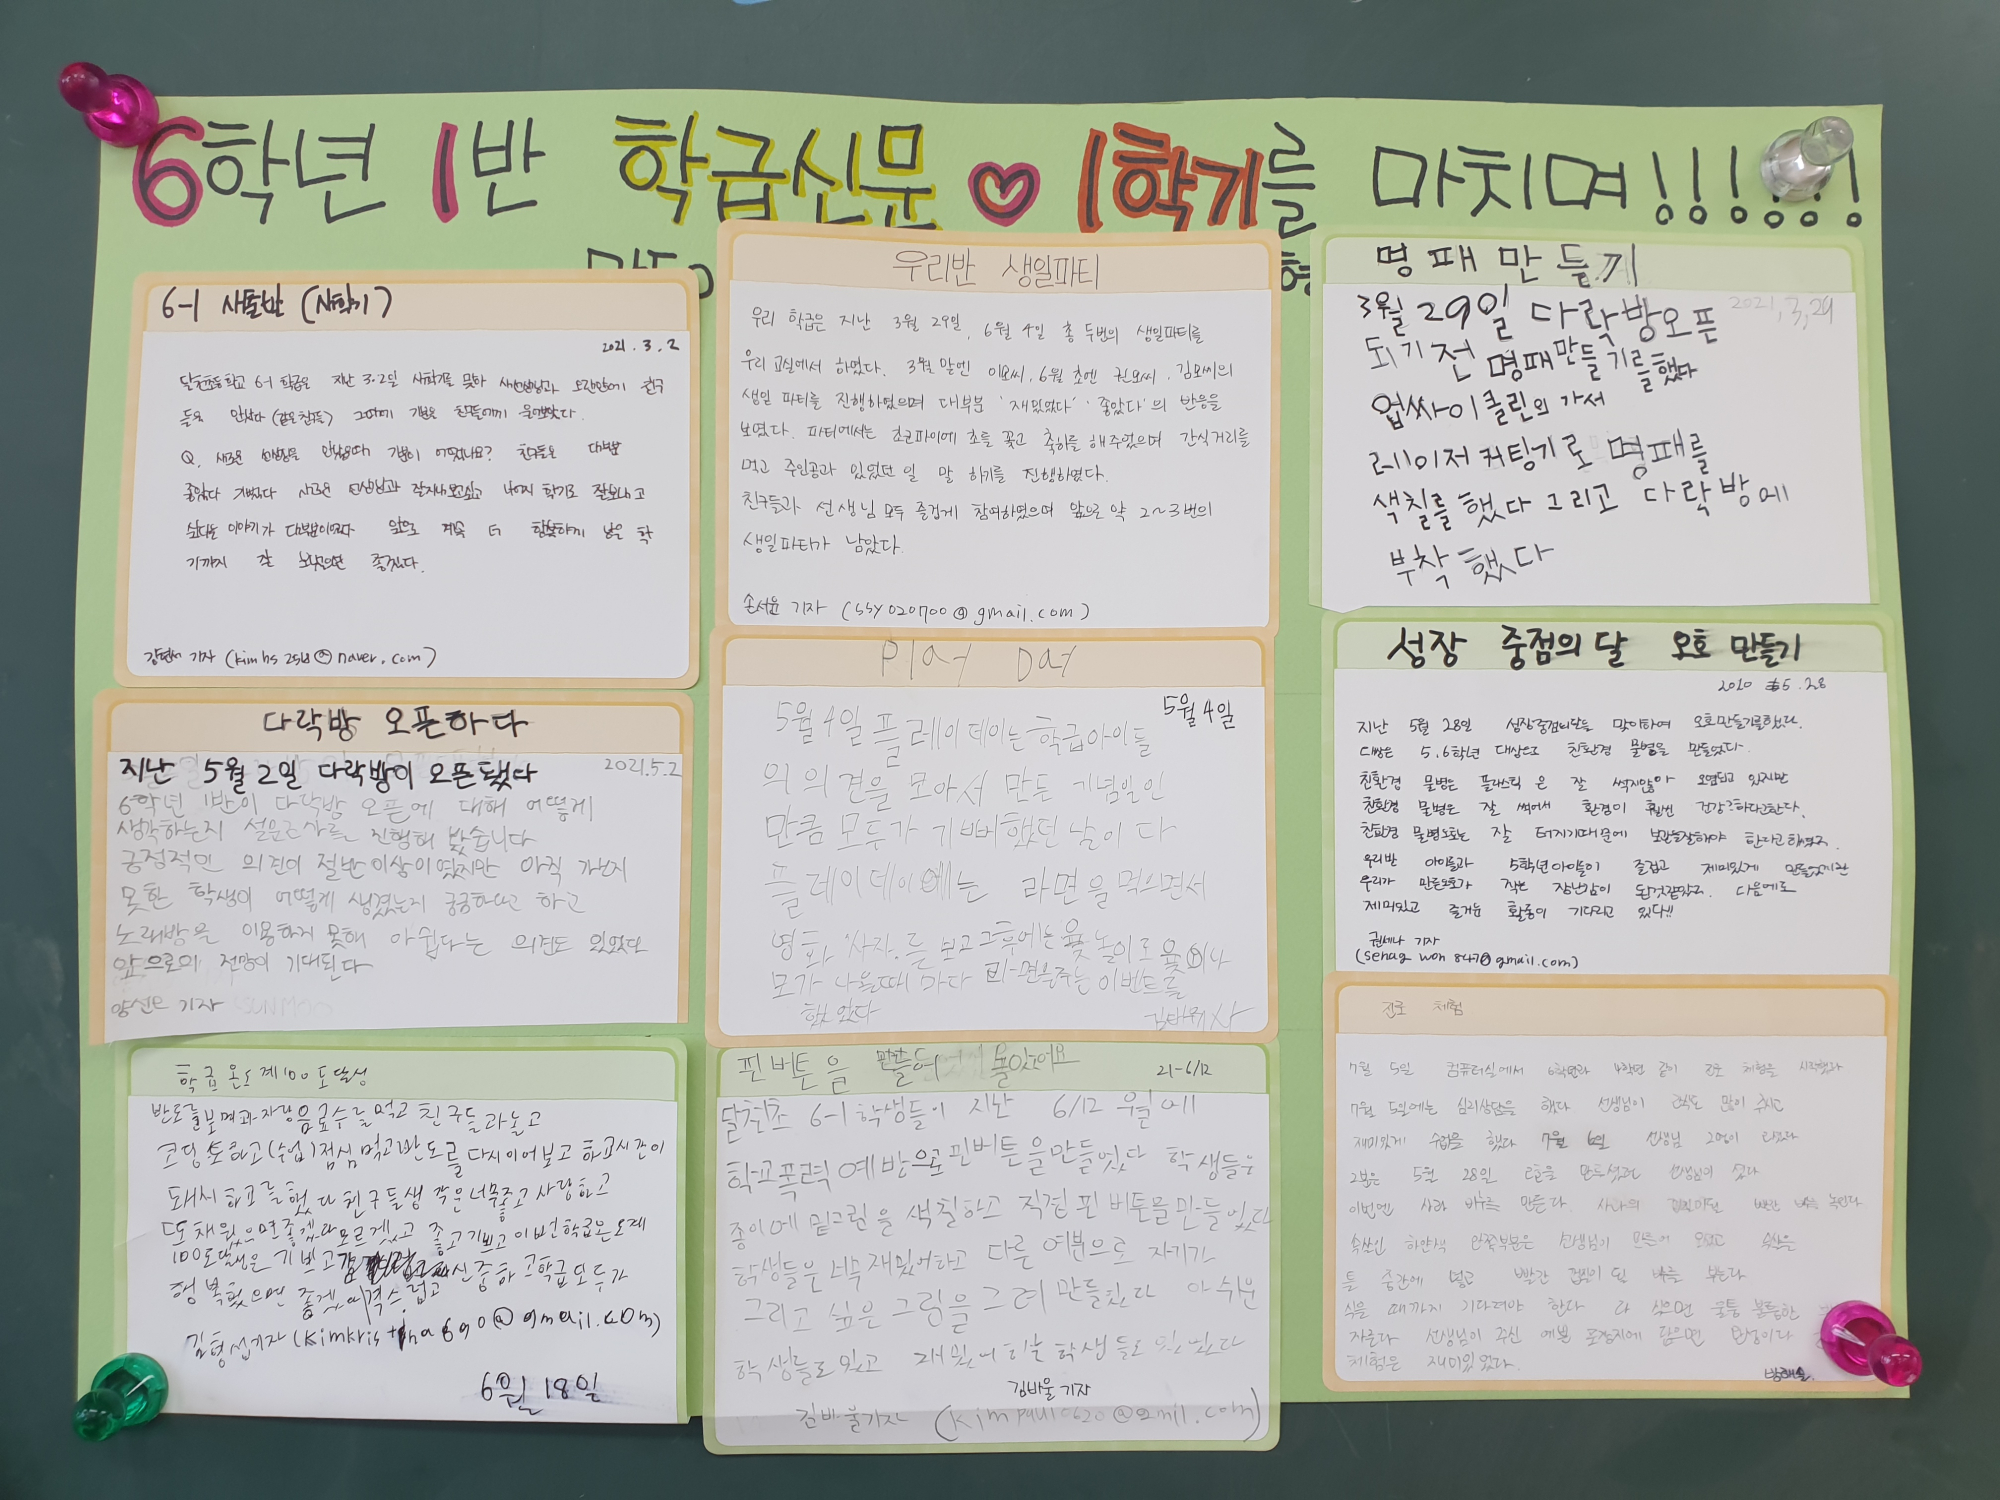 6학년 1반 학급신문 ♡ 1학기를 마치며!!!!!!
6-1 새돌반 (새학기)
2021. 3. 2
달천초등학교 6-1 학급은 지난 3.2일 새학기를 맞아 새선생님과 오랜만에 친구
들을 만났다
Q. 새로운 선생님을 만났을때 기분이 어땠나요? 친구들은 대부분
좋았다 기뻤다 새로운 선생님과 잘지내보고싶고 나머지 학기도 잘보내고
싶다는 이야기가 대부분이였다 앞으로 계속 더 행복하게 남은 학
기까지 잘 보냈으면 좋겠다.
기자 (kimhs256@naver.com)
우리반 생일파티
우리 학급은 지난 3월 29일, 6월 4일 총 두번의 생일파티를
우리 교실에서 하였다. 3월 말엔 이모씨, 6월 초엔 권모씨, 김모씨의
생일 파티를 진행하였으며 대부분 '재밌었다' '좋았다'의 반응을
보였다. 파티에서는 초코파이에 초를 꽂고 축하를 해주었으며 간식거리를
먹고 주인공과 있었던 일 말 하기를 진행하였다.
친구들과 선생님 모두 즐겁게 참여하였으며 앞으로 약 2~3번의
생일파티가 남았다.
손서윤 기자 (ssy020700@gmail.com)
명패만들기
2021,3,29
3월 29일 다락방오픈
되기전 명패만들기를했다
업싸이클린의 가서
레이저커팅기로 명패를
색칠를했다 그리고 다락방에
부착했다
다락방 오픈하다
2021.5.2
지난 5월 2일 다락방이 오픈됐다
6학년 1반이 다락방 오픈에 대해 어떻게
생각하는지 설문조사를 진행해 봤습니다
긍정적인 의견이 절반이상이였지만 아직 가보지
못한 학생이 어떻게 생겼는지 궁금하다고 하고
노래방을 이용하지 못해 아쉽다는 의견도 있었다
앞으로의 전망이 기대된다
기자
Play Day
5월 4일
5월 4일 플레이데이는 학급아이들
의 의견을 모아서 만든 기념일인
만큼 모두가 기뻐했던 날이다
플레이데이에는 라면을 먹으면서
영화 사자.를 보고 그후에는 윷놀이로 윷이나
모가 나올때 마다 라면을주는 이벤트를
했었다
성장 중점의 달 오호 만들기
2020 5.28
지난 5월 28일 성장중점의달을 맞이하여 오호만들기를했다.
대상은 5.6학년 대상으로 친환경 물병을 만들었다.
친환경 물병은 플라스틱 은 잘 썩지않아 오염되고 있지만
친환경 물병은 잘 썩어서 환경이 훨씬 건강?하다고한다.
친환경 물병오호는 잘 터지기때문에 보관을잘해야 한다고하였다.
우리반 아이들과 5학년아이들이 즐겁고 재미있게 만들었지만
우리가 만든오호가 작은 장난감이 된것같았다. 다음에도
재미있고 즐거운 활동이 기다리고 있다!!
권세나 기자
(senagwon847@gmail.com)
학급온도계100도달성
반도를보며과자랑음료수를먹고 친구들과놀고
코딩 토하고(수업)점심 먹고반도를 다시이어보고 하교시간이
돼서 하교를했다 친구들생각은너무좋고 사랑하고
또 채웠으면좋겠다모르겠고 좋고기쁘고이번학급온도계
100도달성은 기쁘고 신중하고학급모두가
행복했으면 좋겠
김형섭기자
6월 18일
핀버튼을 만들어 보았어요
21-6/12
달천초 6-1학생들이 지난 6/12 월에
학교폭력예방으로핀버튼을만들었다 학생들은
종이에 밑그린을 색칠하고 직접 핀버튼를만들었다
학생들은 너무재밌어하고 다른 여분으로 자기가
그리고 싶은 그림을 그려 만들었다 아쉬운
학생들도있고 재밌어하는학생들도있었다
김바울기자
김바울기자 (kimpaul0620@gmil.com)
진로 체험
7월 5일 컴퓨터실에서 6학년과 4학년 같이 진로 체험을 시작했다
7월 5일에는 심리상담을 했다 선생님이 간식도 많이 주시고
재미있게 수업을 했다 7월 6일 선생님 2명이 오셨다
2분은 5월 28일 오호를 만드셨던 선생님이 왔다
이번엔 사과 비누를 만든다.
하얀색 안쪽부분은 선생님이 만들어 오셨고
틀 중간에 넣고 빨간 비누를 붓는다
식을 때까지 기다려야 한다 다 식으면 울퉁 불퉁한
자른다 선생님이 주신 예쁜 포장지에 담으면 완성이다
체험은 재미있었다.